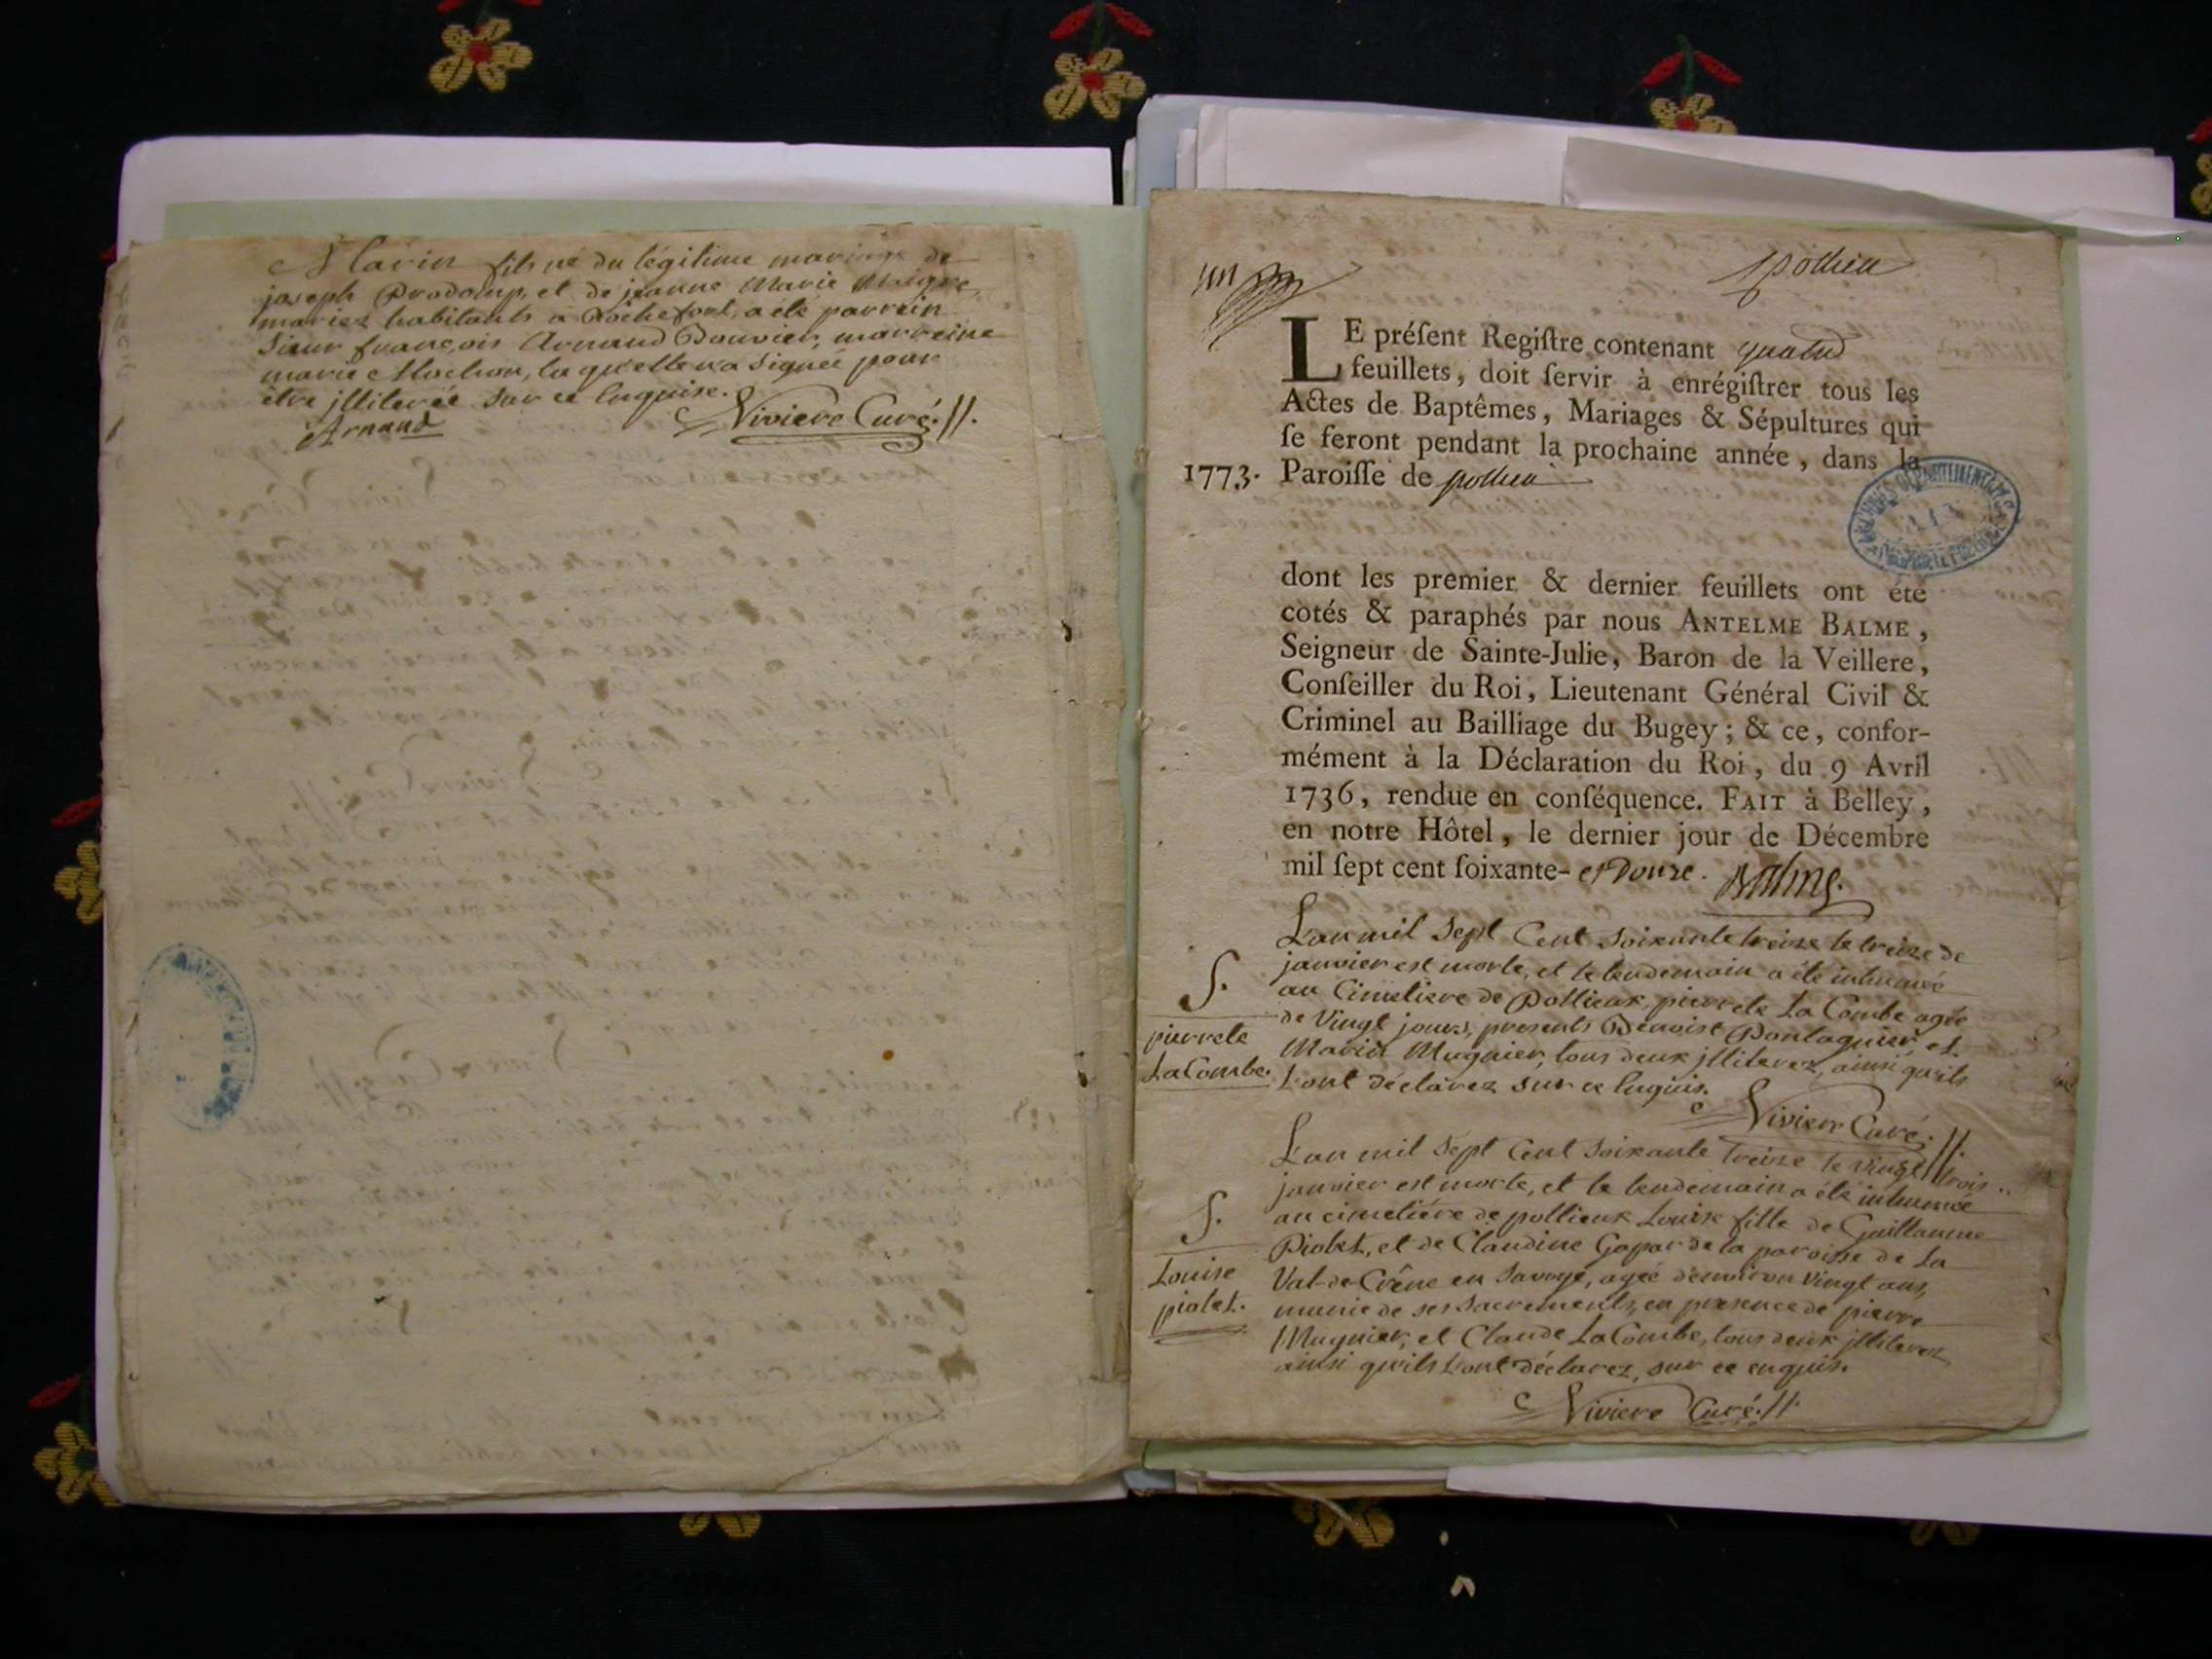 Marin fils né du légitime mariage de
joseph Prodomp, et de jeanne Marie Muigre,
mariez habitants a Rochefort, a été parrein
Sieur françois Arnaud Bouvier, marreine
marie Mochon, la qu'elle n'a signée pour
être jlliterée sur ce Enquise.
Arnaud
Viviere Curé.//.
un
pollieu
LE préſent Regiſtre contenant quatre
feuillets, doit ſervir à enrégiſtrer tous les
Actes de Baptêmes, Mariages & Sépultures qui
ſe feront pendant la prochaine année, dans la
1773. Paroiſſe de pollieu
ARCHIVES DEPARTEMENTALES
AIN
dont les premier & dernier feuillets ont été
cotés & paraphés par nous ANTELME BALME,
Seigneur de Sainte-Julie, Baron de la Veillere,
Conſeiller du Roi, Lieutenant Général Civil &
Criminel au Bailliage du Bugey; & ce, confor-
mément à la Déclaration du Roi, du 9 Avril
1736, rendue en conſéquence. FAIT à Belley,
en notre Hôtel, le dernier jour de Décembre
mil ſept cent ſoixante- et Douze. Balme.
S.
pierrete
LaCombe.
L'an mil Sept Cent Soixante treize le treize de
janvier est morte, et le lendemain a été inhumée
au Cimetiere de Pollieux, pierrete La Combe agée
de Vingt jours, presents Benoist Pontagnier et
Marin Mugnier, tous deux jlliterez, ainsi qu'ils
l'ont déclarez sur ce Enquis.
Viviere Curé.//
S.
Louise
piolet.
L'an mil Sept Cent Soixante Treize le vingt trois
janvier est morte, et le lendemain a été inhumée
au cimetiére de pollieux Louise fille de Guillaume
Piolet, et de Claudine Gapar de la paroisse de La
Val-de-Crêne en Savoye, agée d'environ vingt ans,
munie de ses Sacrements, en presence de pierre
Mugnier, et Claude LaCombe, tous deux jlliterez
ainsi qu'ils l'ont déclarez, sur ce enquis.
Viviere Curé.//.